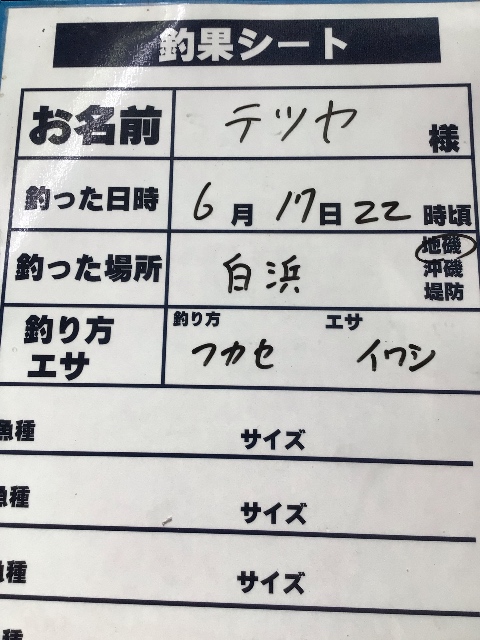 釣果シート
お名前 テツヤ 様
釣った日時 6月17日22時頃
釣った場所 白浜 地磯
沖磯
堤防
釣り方 エサ
釣り方 フカセ エサ イワシ
魚種 サイズ
魚種 サイズ
魚種 サイズ